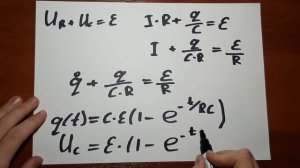 U_R + U_C = ε
I·R + q/C = ε
I + q/(C·R) = ε/R
q̇ + q/(C·R) = ε/R
q(t) = C·ε(1 - e^(-t/RC))
U_C = ε·(1 - e^(-t